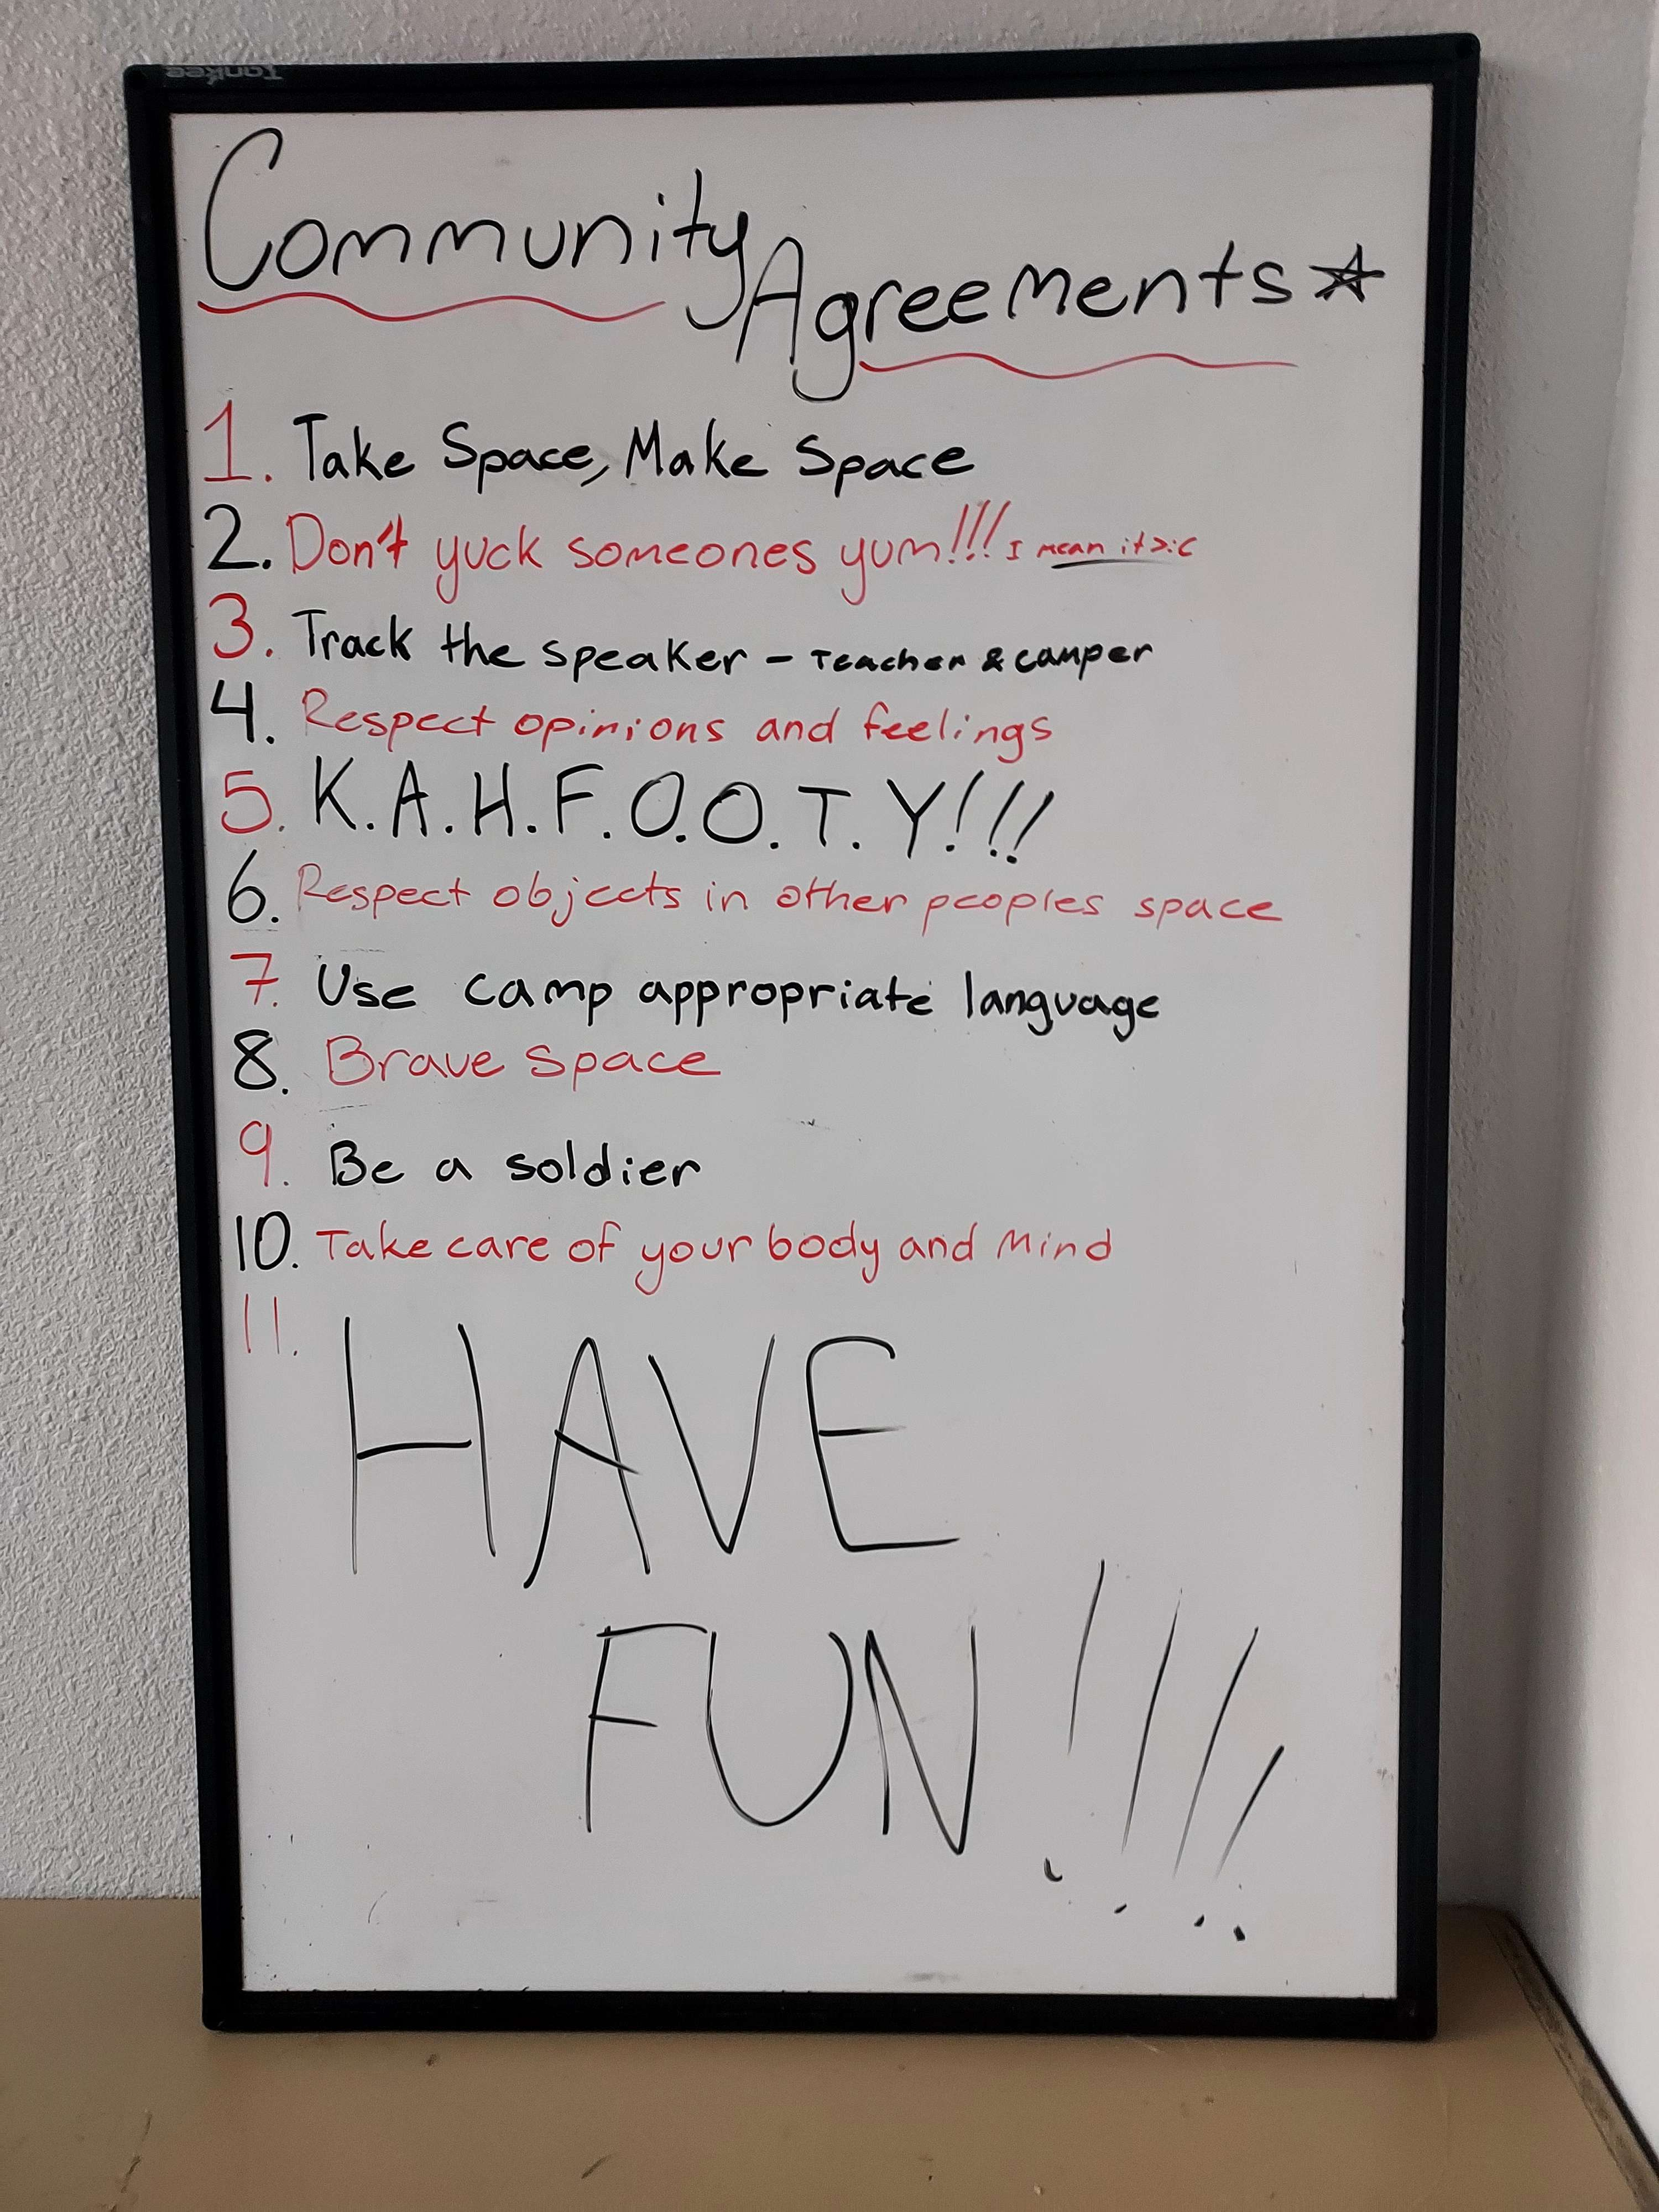 Yankee
Community
Agreements ☆
1. Take Space, Make Space
2. Don't yuck someones yum!!! I mean it >:c
3. Track the speaker - Teacher & camper
4. Respect opinions and feelings
5. K.A.H.F.O.O.T.Y!!!
6. Respect objects in other peoples space
7. Use camp appropriate language
8. Brave Space
9. Be a soldier
10. Take care of your body and Mind
11. HAVE
FUN!!!!